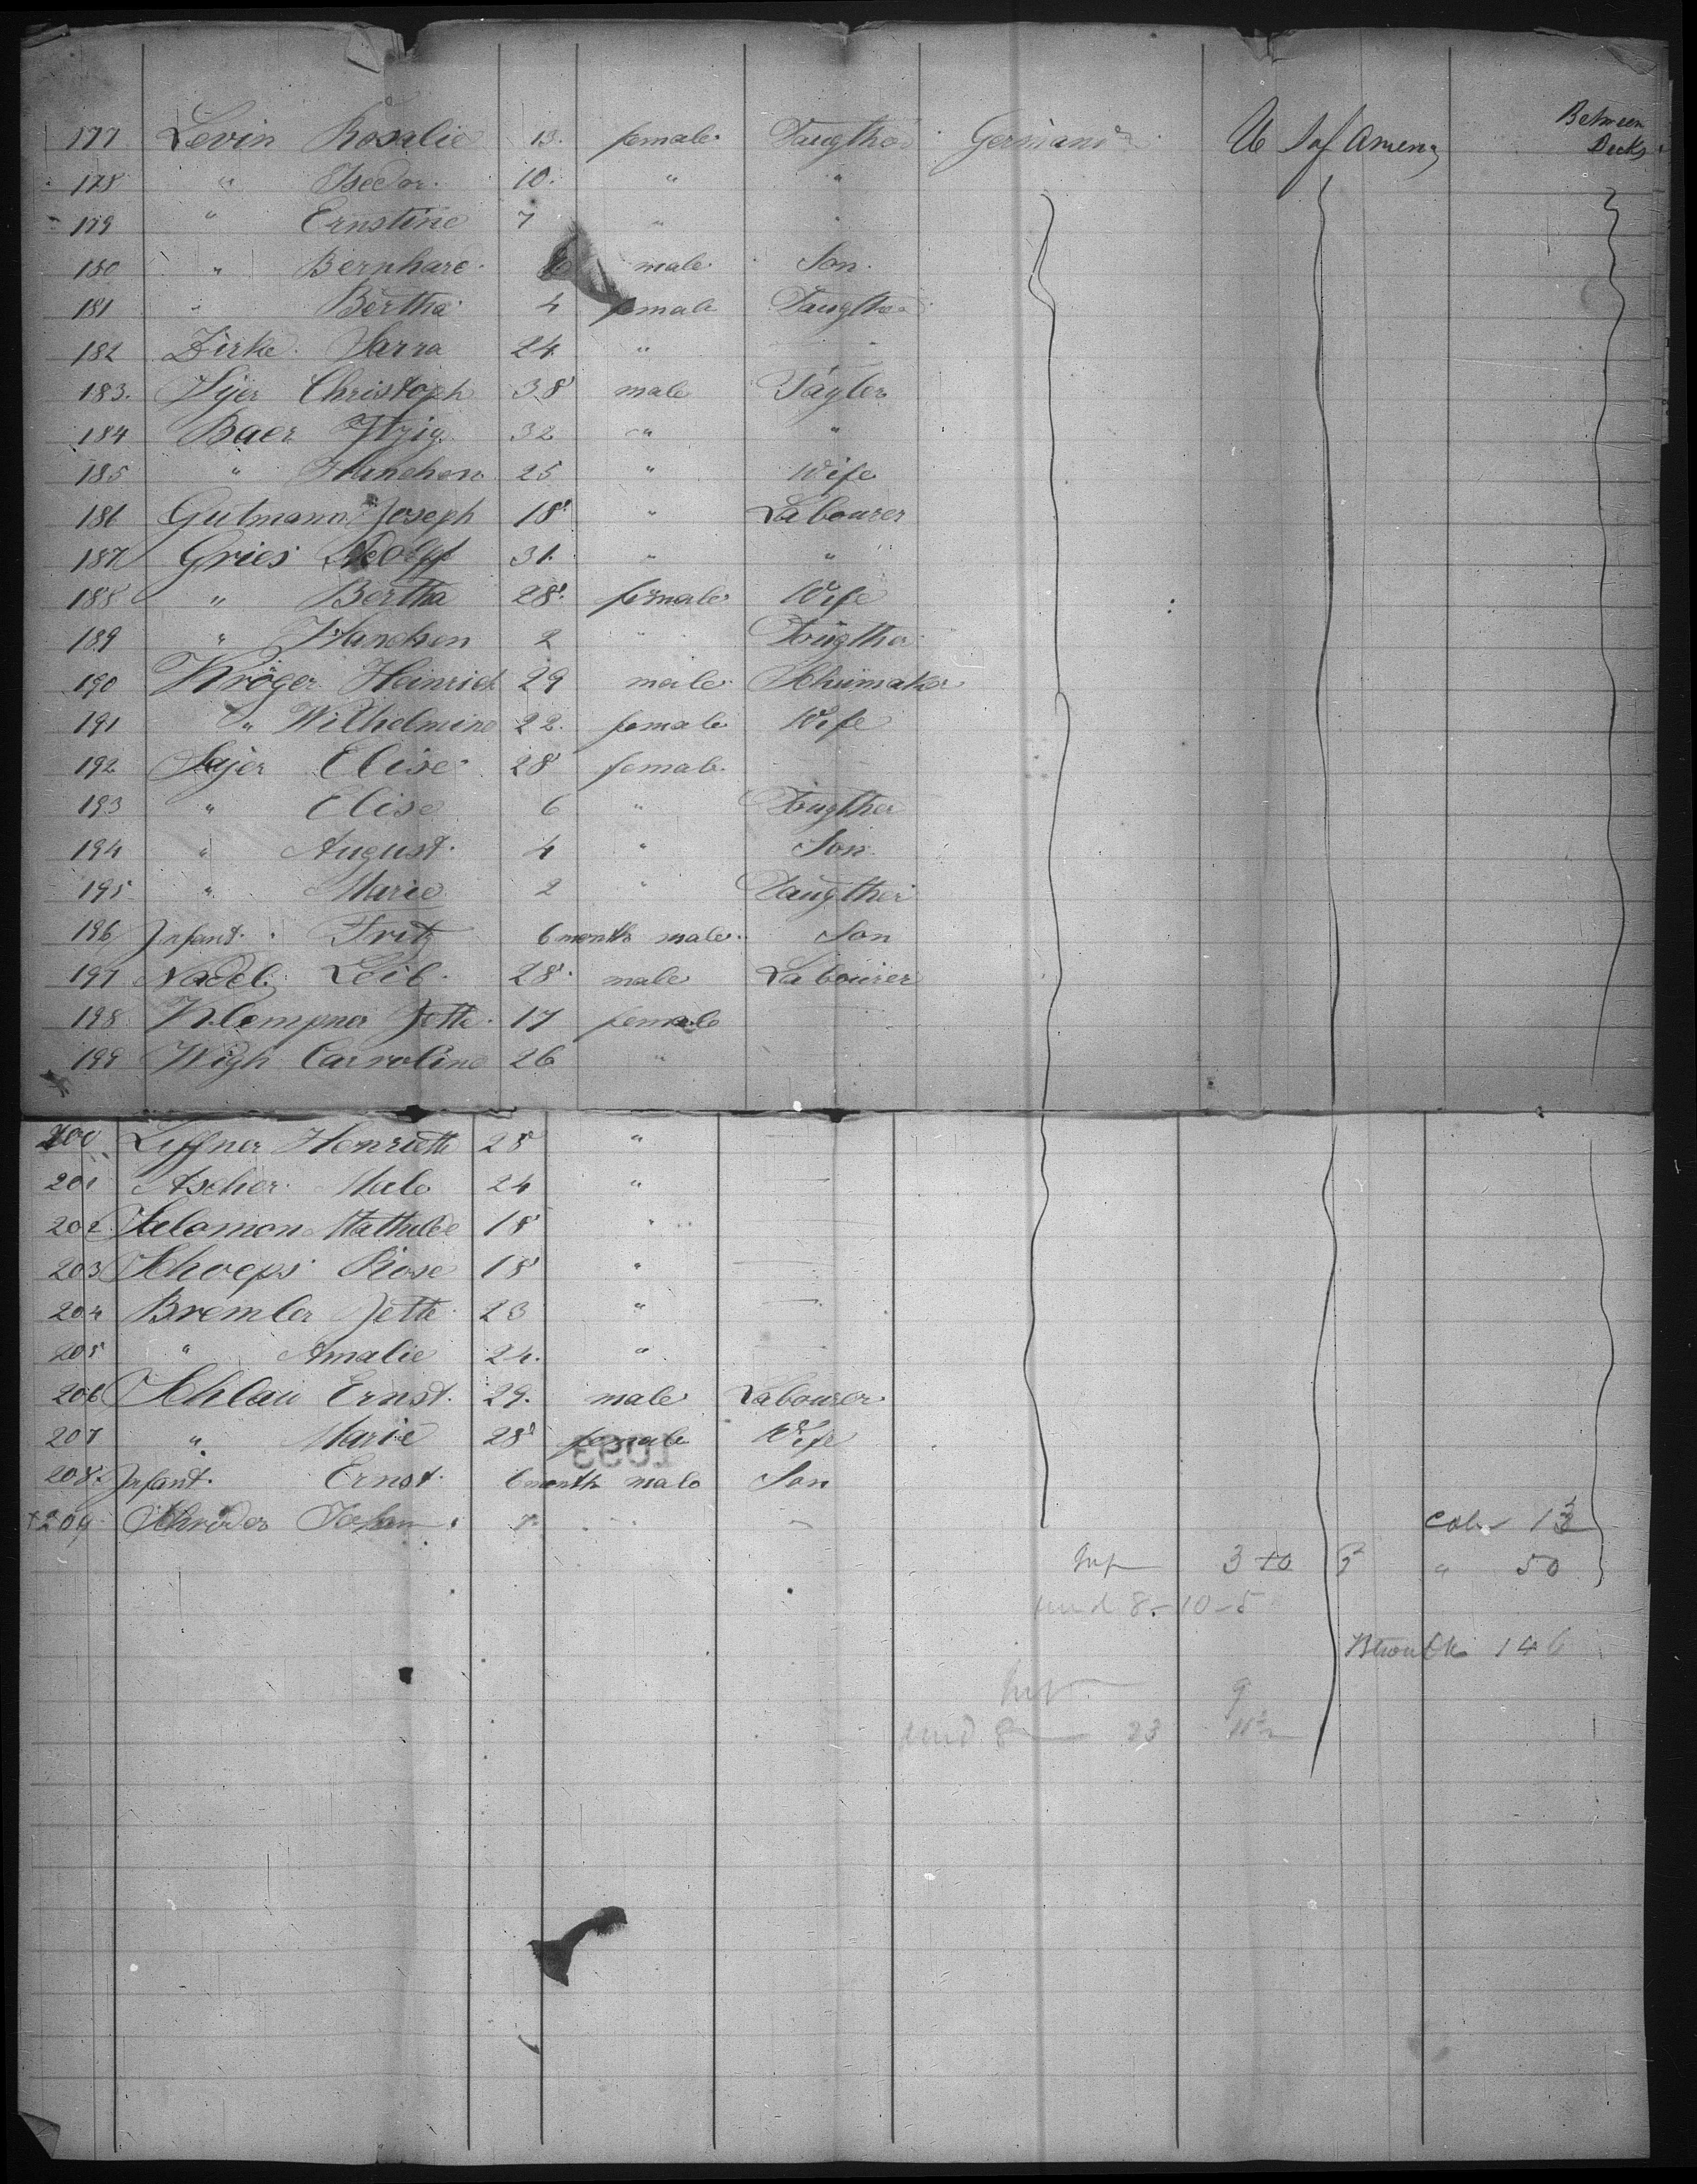 177 Levin Rosalie 13. female Taugther Germani U S of Amen Between Decks
178 " Isedor. 10. " "
179 " Ernstine 7 " "
180 " Bernhard. male Son.
181 " Bertha 4 female Taugther
182 Dirke. Sarra 24 " -
183. Christoph 38 male Tagler
184 Baer Itzig. 32 " "
185 " Hanchen 25 " Wife
186 Gutmann Joseph 18 " Labourer
187 Gries Adolf 31. " "
188 " Bertha 28. female Wife
189 " Hanchen 2 " Tougther
190 Kröger Heinrich 29 male Schümaker
191 " Wilhelmine 22. female Wife
192 Elise 28 female.
193 " Elise 6 " Tougther
194 " August. 4 " Son.
195 " Marie 2 " Taugther
196 Infant. Fritz 6 month male. Son
197 Nadel. Leib. 28. male Labourer
198 Klempner Jette. 17 female —
199 Wigh Carroline 26 " —
200 Leffner Henriette 28 " —
201 Ascher. Male 24 " —
202. Salomon Mathilde 18 " —
203 Schoeps Rose 18 " —
204 Bremler Jette. 23 " —
205 " Amalie 24. " -
206 Schlau Ernst. 29. male Labourer
207 " Marie 28 female Wife
208. Infant. Ernst. 6 month male Son
209 - - Cab 13
3 " 50
8 - 10 - 5
146
9
8 — 23